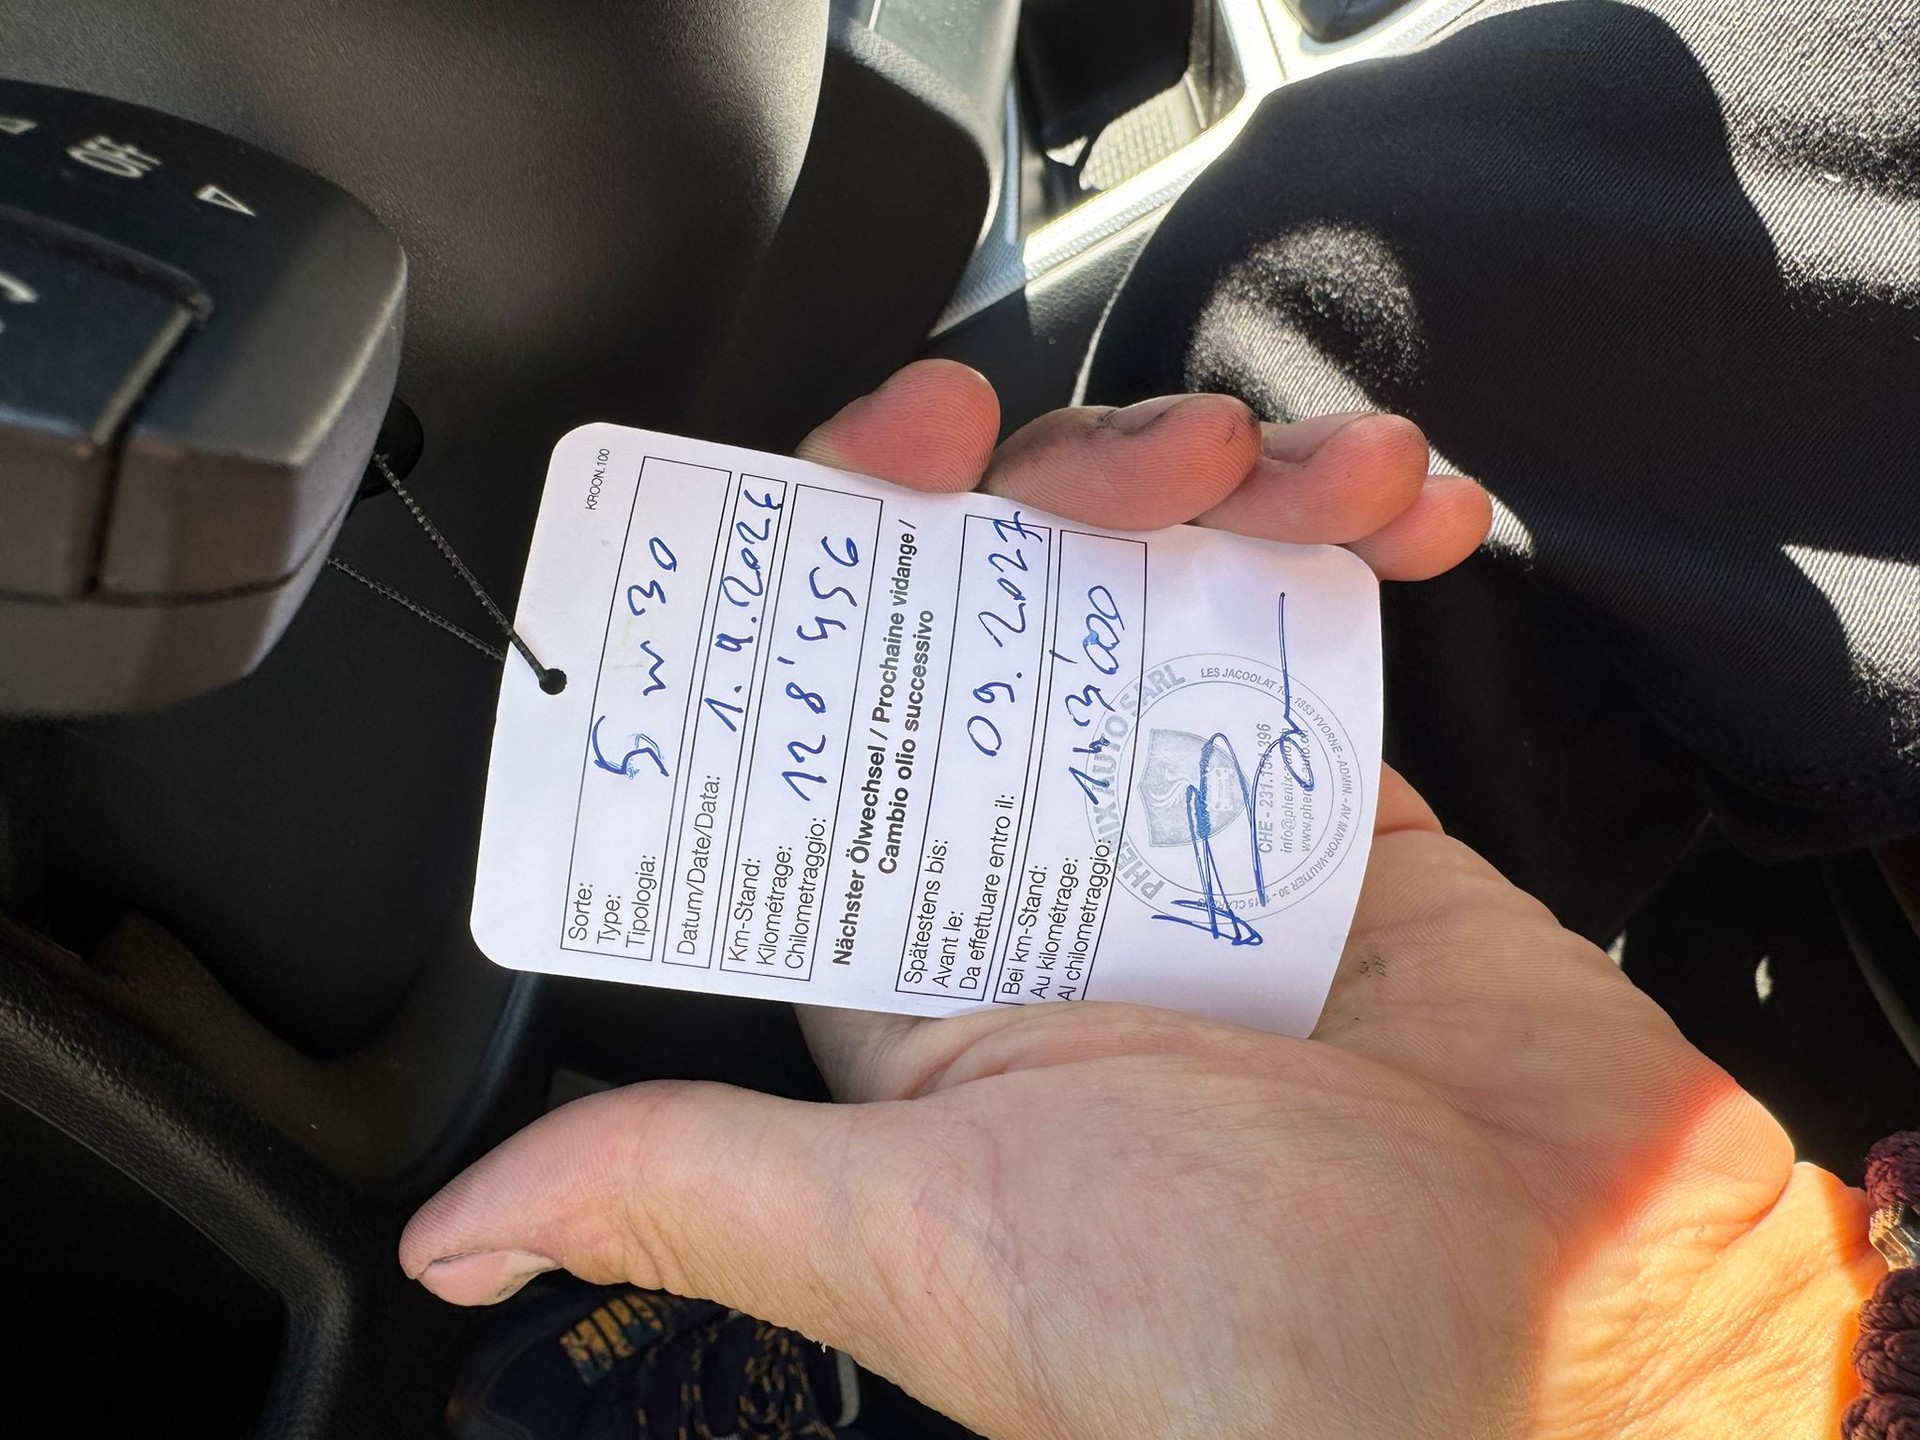 KROON.100
Sorte:
Type:
Tipologia:
5 w 30
Datum/Date/Data:
1.4.2026
Km-Stand:
Kilométrage:
Chilometraggio:
128'456
Nächster Ölwechsel / Prochaine vidange /
Cambio olio successivo
Spätestens bis:
Avant le:
Da effettuare entro il:
09.2027
Bei km-Stand:
Au kilométrage:
Al chilometraggio:
143'000
PHENIX AUTO SÀRL
LES JACOOLAT 1853 YVORNE - ADMIN. - AV. MAYOR-VAUTIER 30 - 1815 CLARENS
CHE - 231.154.396
info@phenix-auto.ch
www.phenix-auto.ch